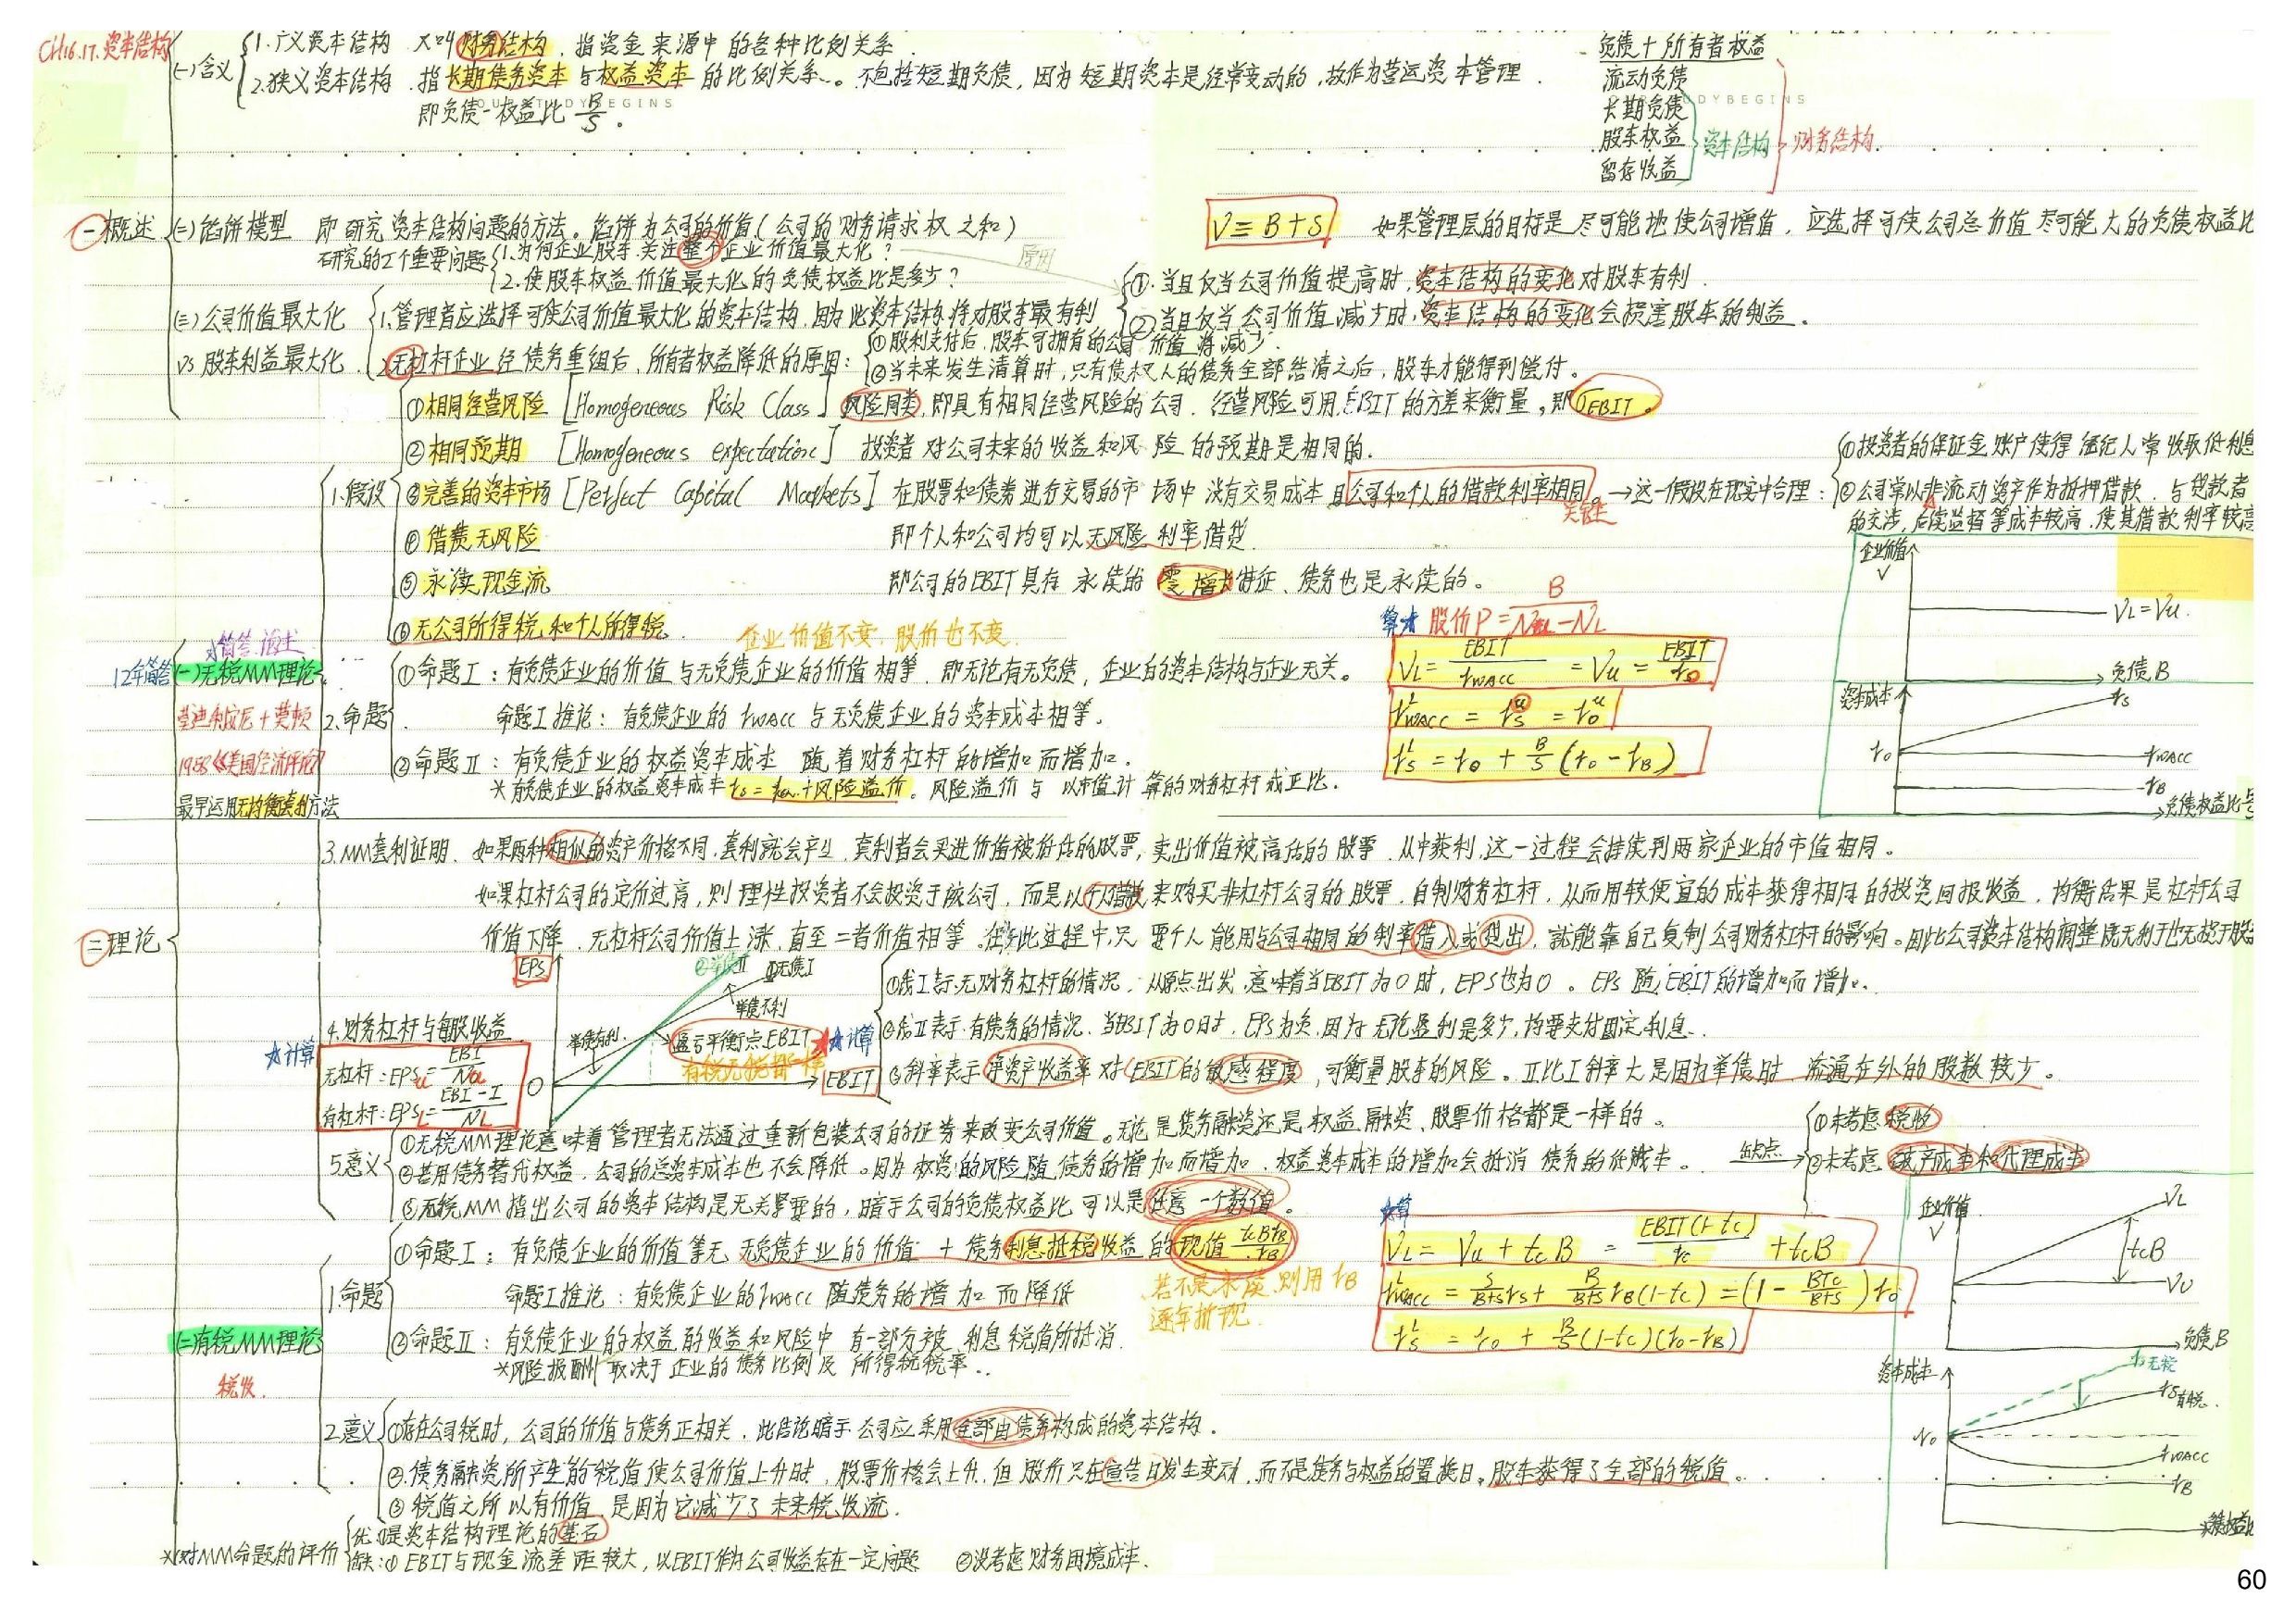 CH16.17.资本结构
(一)含义
1.广义资本结构 又叫财务结构，指资金来源中的各种比例关系.
2.狭义资本结构 指长期债务资本与权益资本的比例关系。不包括短期负债，因为短期资本是经常变动的，故作为营运资本管理.
即负债-权益比 B/S。
OUR STUDY BEGINS
负债+所有者权益
流动负债
长期负债
股东权益
留存收益
资本结构
财务结构.
DYBEGINS
一概述
(二)馅饼模型 即研究资本结构问题的方法。馅饼为公司的价值(公司的财务请求权之和)
V≡B+S 如果管理层的目标是尽可能地使公司增值，应选择可使公司总价值尽可能大的负债权益比
研究的2个重要问题
1.为何企业股东关注整个企业价值最大化？
原则
2.使股东权益价值最大化的负债权益比是多少？
①.当且仅当公司价值提高时,资本结构的变化对股东有利.
②当且仅当公司价值减少时,资本结构的变化会损害股东的利益.
(三)公司价值最大化
VS 股东利益最大化
1.管理者应选择可使公司价值最大化的资本结构,因为此资本结构将对股东最有利
2.无杠杆企业经债务重组后，所有者权益降低的原因:
①股利支付后，股东可拥有的公司价值将减少.
②当未来发生清算时,只有债权人的债务全部结清之后，股东才能得到偿付。
二理论
12年简答
对简答.论述
(一)无税MM理论
莫迪利安尼+莫顿
1958《美国经济评论》
最早运用无均衡套利方法
1.假设
①相同经营风险 [Homogeneous Risk Class] 风险同类,即具有相同经营风险的公司. 经营风险可用EBIT的方差来衡量。即σEBIT。
②相同预期 [Homogeneous expectation] 投资者对公司未来的收益和风险的预期是相同的.
③完善的资本市场 [Perfect Capital Markets] 在股票和债券进行交易的市场中没有交易成本且公司和个人的借款利率相同。→这一假设在现实中合理:
关键
①投资者的保证金账户使得经纪人常收取低利息
②公司常以非流动资产作为抵押借款.与贷款者
的交涉,后续监督等成本较高,使其借款利率较高
④借贷无风险 即个人和公司均可以无风险利率借贷.
⑤永续现金流 即公司的EBIT具有永续的零增长特征、债务也是永续的。
⑥无公司所得税和个人所得税.
企业价值不变，股价也不变.
2.命题
①命题Ⅰ:有负债企业的价值与无负债企业的价值相等.即无论有无负债，企业的资本结构与企业无关。
命题Ⅰ推论:有负债企业的rWACC与无负债企业的资本成本相等。
②命题Ⅱ:有负债企业的权益资本成本随着财务杠杆的增加而增加.
※有负债企业的权益资本成本rs=r+风险溢价。风险溢价与以市值计算的财务杠杆成正比.
算☆ 股价P=B/(N-NL)
VL=EBIT/rWACC=Vu=EBIT/r0
rWACC=rs=r0
rs=r0+B/S(r0-rB)
企业价值
V
VL=Vu.
负债B
资本成本
rs
r0
rWACC
rB
负债权益比
3.MM套利证明. 如果两种相似的资产价格不同,套利就会产生.套利者会买进价值被低估的股票,卖出价值被高估的股票.从中获利,这一过程会持续到两家企业的市值相同。
如果杠杆公司的定价过高，则理性投资者不会投资于该公司，而是以个人借款来购买非杠杆公司的股票，自制财务杠杆，从而用较便宜的成本获得相同的投资回报收益，均衡结果是杠杆公司
价值下降，无杠杆公司价值上涨，直至二者价值相等.在此过程中,只要个人能用与公司相同的利率借入或贷出，就能靠自己复制公司财务杠杆的影响。因此公司资本结构调整既无利于也无损于股东
4.财务杠杆与每股收益
☆计算
无杠杆:EPSu=EBI/Nu
有杠杆:EPSL=EBI-I/NL
EPS
②举债Ⅱ
①无债Ⅰ
举债不利
举债有利.
盈亏平衡点EBIT
有税无税都一样
O
EBIT
☆计算
①线Ⅰ表示无财务杠杆的情况，从原点出发,意味着当EBIT为0时，EPS也为0。EPS随EBIT的增加而增加.
②线Ⅱ表示有债务的情况.当EBIT为0时，EPS为负,因为无论盈利是多少,均要支付固定利息.
③斜率表示净资产收益率对EBIT的敏感程度,可衡量股东的风险。Ⅱ比Ⅰ斜率大是因为举债时流通在外的股数较少。
5.意义
①无税MM理论意味着管理者无法通过重新包装公司的证券来改变公司价值。无论是债务融资还是权益融资、股票价格都是一样的。
②若用债务替代权益，公司的总资本成本也不会降低。因为权益的风险随债务的增加而增加，权益资本成本的增加会抵消债务的低成本。
③无税MM指出公司的资本结构是无关紧要的，暗示公司的负债权益比可以是任意一个数值。
缺点
①未考虑税收
②未考虑破产成本和代理成本
(二)有税MM理论
税收.
1.命题
①命题Ⅰ:有负债企业的价值等无 无负债企业的价值+债务利息抵税收益的现值 tcBrB/rB
若不是永续,则用rB
逐年折现.
命题Ⅰ推论:有负债企业的rWACC随债务的增加而降低
②命题Ⅱ:有负债企业的权益的收益和风险中有一部分被利息税盾所抵消.
※风险报酬取决于企业的债务比例及所得税税率..
☆算
VL=Vu+tcB=EBIT(1-tc)/r+tcB
rWACC=S/(B+S)rs+B/(B+S)rB(1-tc)=(1-BTc/(B+S))r0
rs=r0+B/S(1-tc)(r0-rB)
企业价值
V
VL
tcB
VU
负债B
资本成本
rs无税
rs有税.
r0
rWACC
rB
2.意义
①存在公司税时，公司的价值与债务正相关.此结论暗示公司应采用全部由债务构成的资本结构.
②.债务融资所产生的税盾使公司价值上升时，股票价格会上升.但股价只在宣告日发生变动,而不是债务与权益的置换日.股东获得了全部的税盾。
③税盾之所以有价值是因为它减少了未来税收流.
※对MM命题的评价
优:是资本结构理论的基石
缺:①EBIT与现金流差距较大，以EBIT作为公司收益存在一定问题 ②没考虑财务困境成本.
60